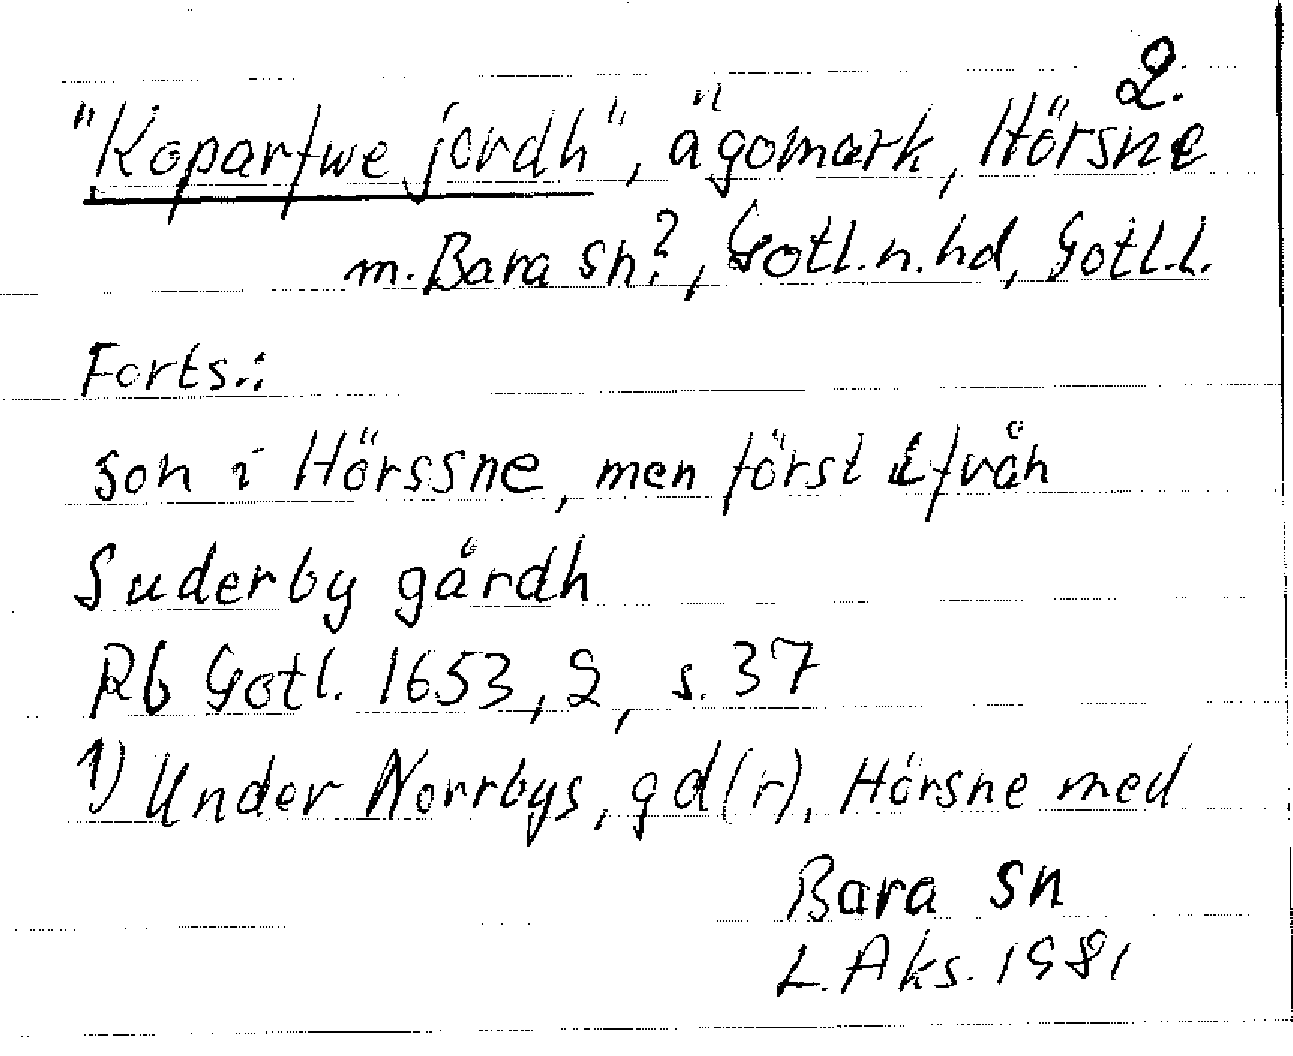 2.
"Koparfwe jordh", ägomark, Hörsne
m. Bara sn?, Gotl. n. hd, Gotl. l.
Forts.:
son i Hörssne, men först ifrån
Suderby gårdh
Rb Gotl. 1653, 2, s. 37
1) Under Norrbys, gd(r), Hörsne med
Bara sn
L. Aks. 1981